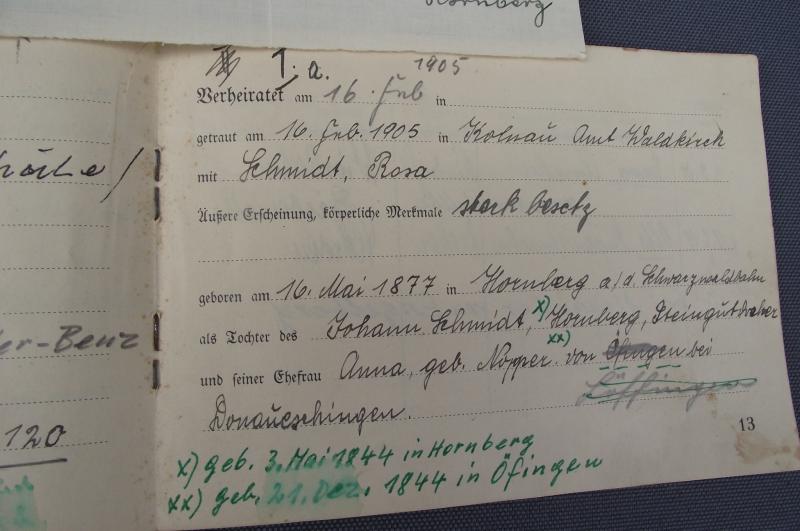 Hornberg
1. a. 1905
Verheiratet am 16. Feb in
getraut am 16. Feb. 1905 in Kolnau Amt Waldkirch
mit Schmidt, Rosa
Äußere Erscheinung, körperliche Merkmale stark besetz
geboren am 16. Mai 1877 in Hornberg a/d. Schwarzwaldbahn
als Tochter des Johann Schmidt, x) Hornberg, Steingutdreher
und seiner Ehefrau Anna, geb. Nopper. xx) von Öfingen bei
Löffingen
Donaueschingen.
13
x) geb. 3. Mai 1844 in Hornberg
xx) geb. 21. Dez. 1844 in Öfingen
er-Benz
120